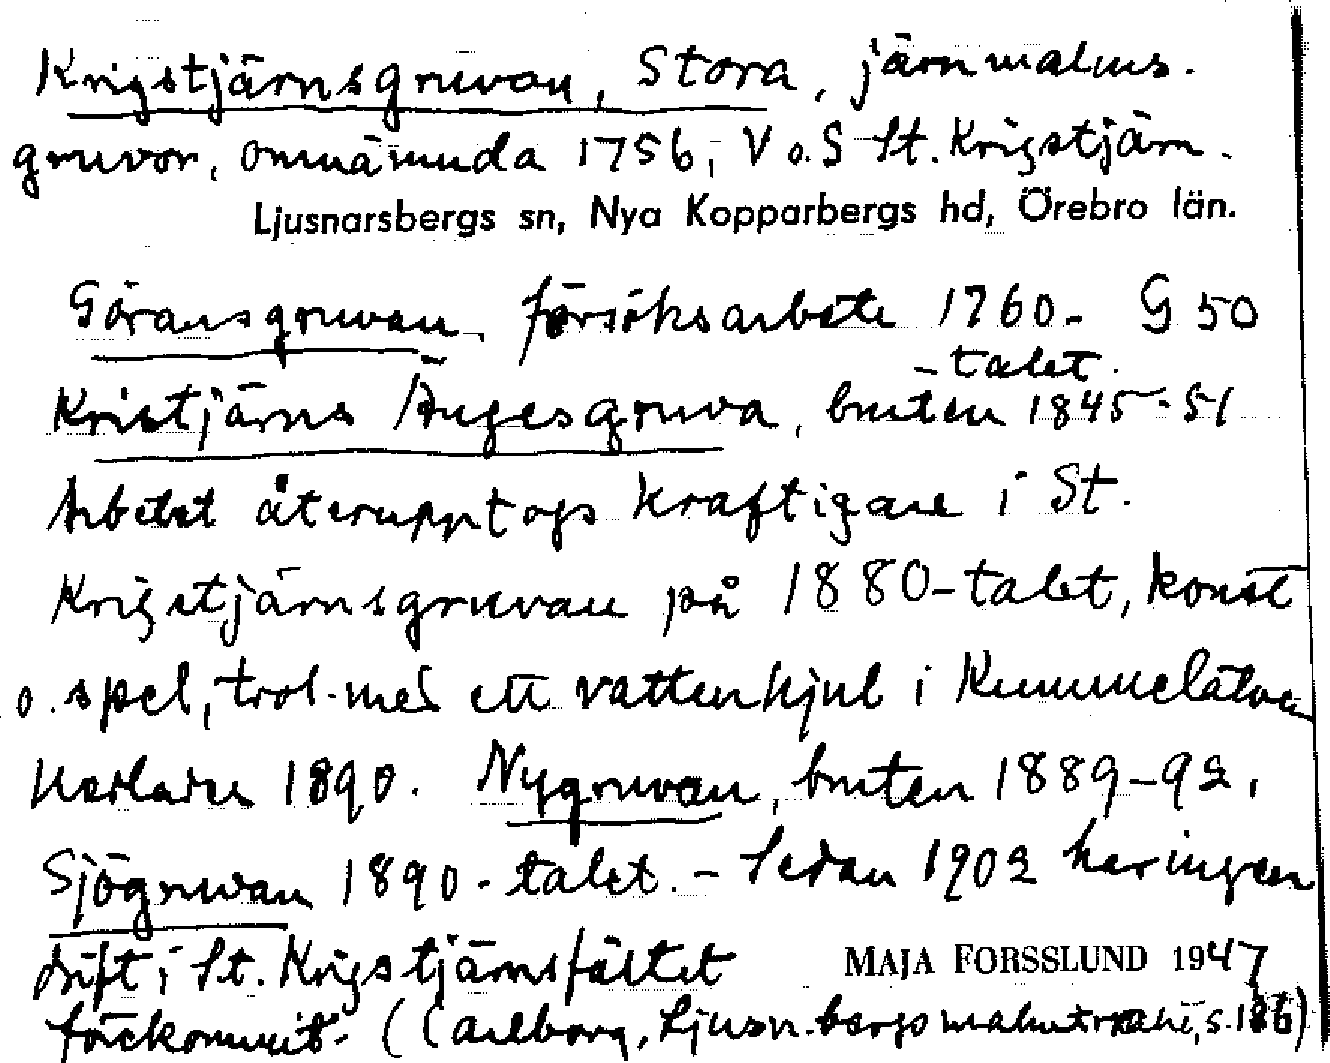 Krigstjärnsgruvan, Stora, järnmalms-
gruvor, omnämnda 1756, V o. S St. Krigstjärn.
Ljusnarsbergs sn, Nya Kopparbergs hd, Örebro län.
Göransgruvan, försöksarbete 1760- G 50
-talet.
Kristjärns Ängesgruva, bruten 1845-51
Arbetet återupptogs kraftigare i St.
Krigstjärnsgruvan på 1880-talet, konst
o. spel, trol. med ett vattenhjul i
1890. Nygruvan, bruten 1889-92,
Sjögruvan 1890-talet. - Sedan 1902 har ingen
drift i St. Krigstjärnsfältet
MAJA FORSSLUND 1947
förekommit. (Carlborg, Ljusn.bergs malmtrakt, s. 186)